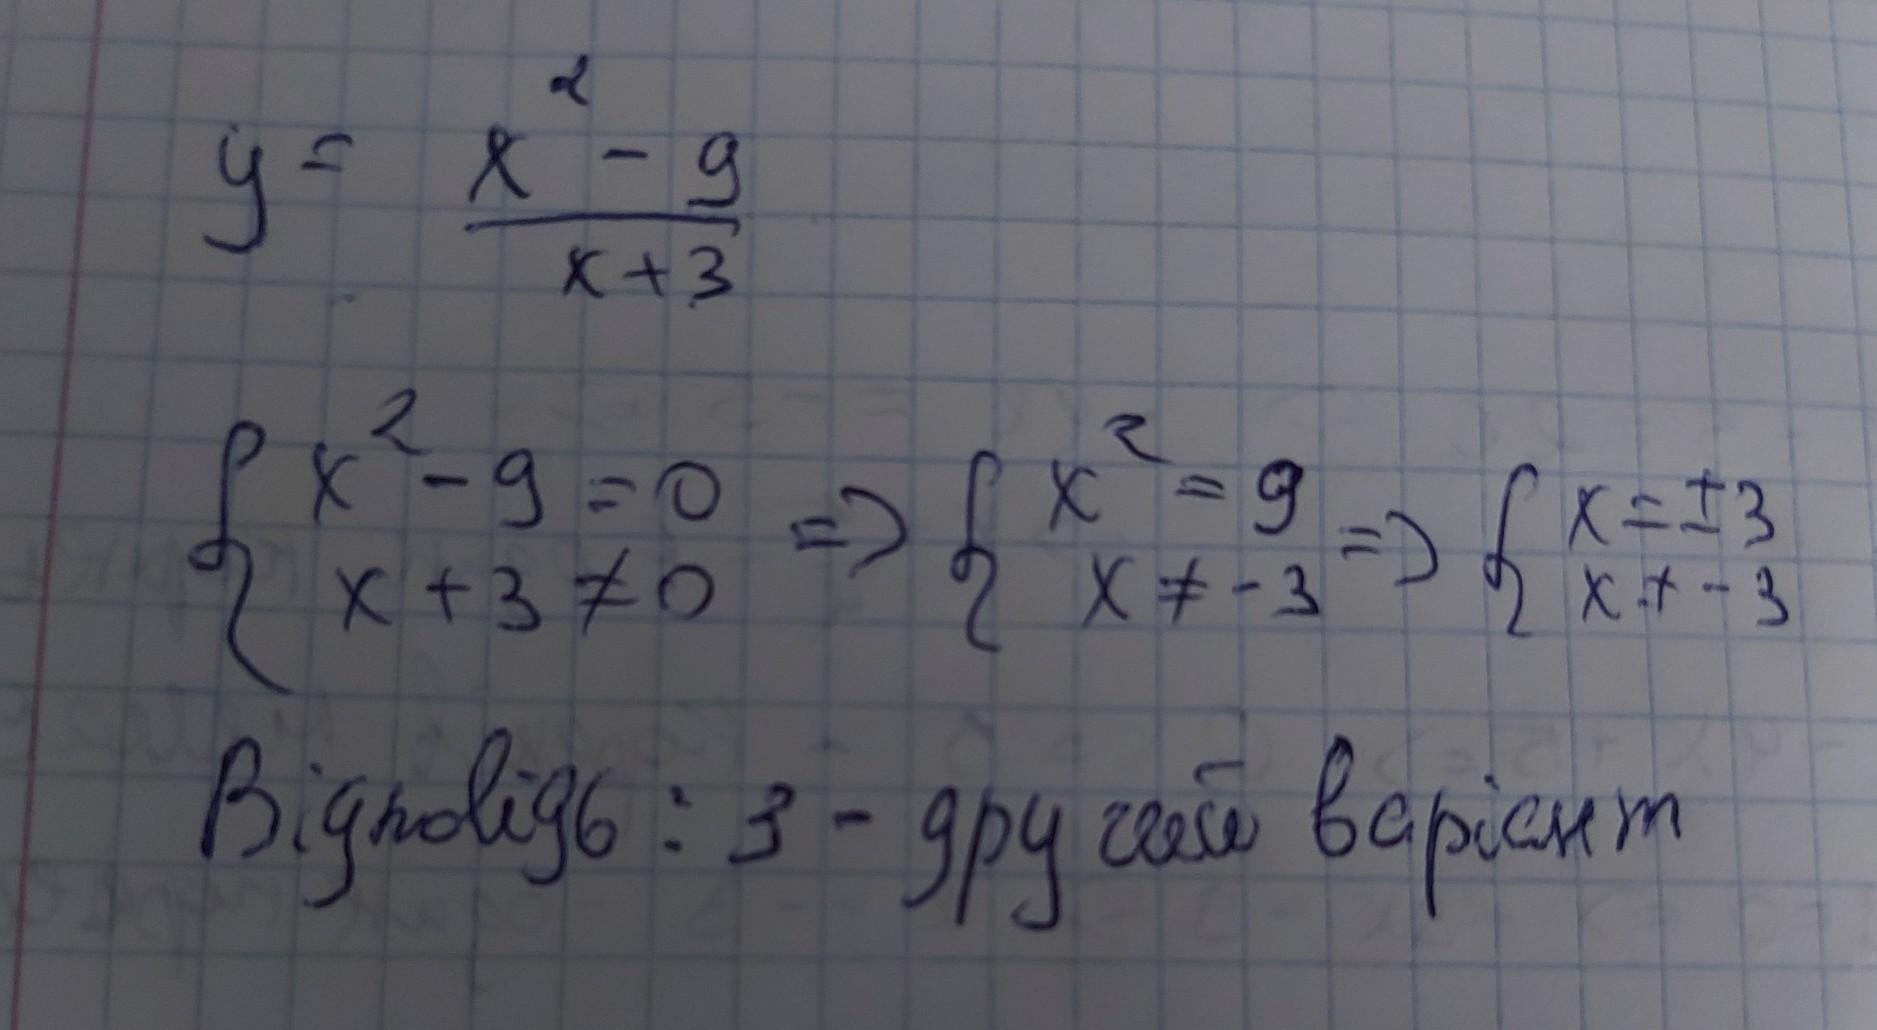 y = x² - 9 / x + 3
{ x² - 9 = 0 => { x² = 9 => { x = ±3
x + 3 ≠ 0 x ≠ -3 x ≠ -3
Відповідь : 3 - другий варіант